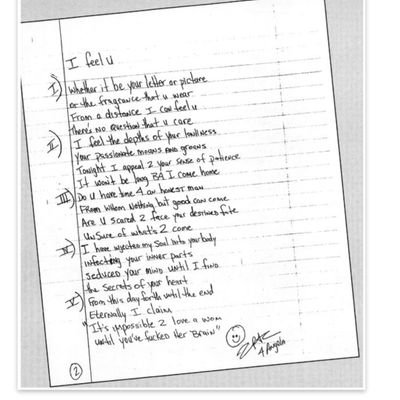 I feel u
I) Whether it be your letter or picture
or the fragrance that u wear
From a distance I can feel u
There's no question that u care
II) I feel the depths of your loneliness
Your passionate moans and groans
Tonight I appeal 2 your sense of patience
It won't be long B4 I come home
III) Do u have time 4 an honest man
From whom nothing but good can come
Are u scared 2 face your destined fate
UnSure of what's 2 come
IV) I have injected my soul into your body
infecting your inner parts
seduced your mind until I find
the secrets of your heart
V) From this day forth until the end
Eternally I claim
"It's impossible 2 love a wom
until you've fucked Her Brain"
4 Angela
2